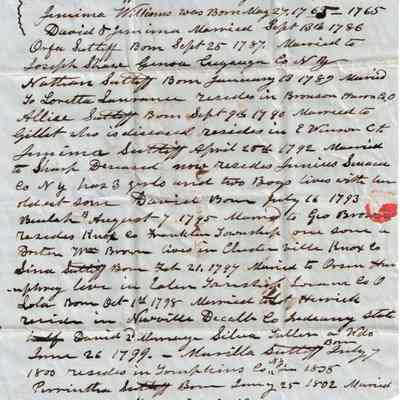 Jemima Williams was Born May 27, 1765 - 1765
David & Jemima Married Sept 13th 1786
Orfa Sutliff Born Sept 25 1787. Married to
Joseph Shaw Genoa Cayauga Co N Y
Nathan Sutliff Born January 13 1789 Maried
To Loretta Laurance resides in Bronson Huron Co O
Allice Sutliff Born Sept 9th 1790 Married to
Gillet who is deceased resides in E Winsor Ct
Jemima Sutliff April 20th 1792 Married
to Sharp Deceased now resides Junius Seneca
Co N Y has 3 girls and two Boys lives with an
oldest son Daniel Born July 16 1793
Beulah August 7 1795 Married to Geo Brown
resides Knox Co Franklin Township one son a
Doctor Wm Brown lives in Chesterville Knox Co
Lina Sutliff Born Feb 21, 1797 Married to Orson
live in Eaton Township Lorane Co O
Lola Born Oct 1st 1798 Married Herrick
reside in Newville Decalb Co Indeany State
David 2d Marriage Silva Fuller a Wdo
June 26 1799. - Marilla Sutliff Born July 7
1800 resides in Tompkins Co 1835
Perrintha Sutliff Born Jany 25 1802 Maried